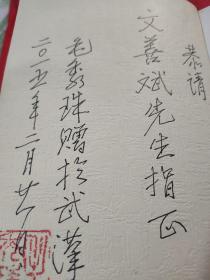 恭请
文善斌先生指正
毛秀珠赠于武汉
二〇一五年二月廿八日